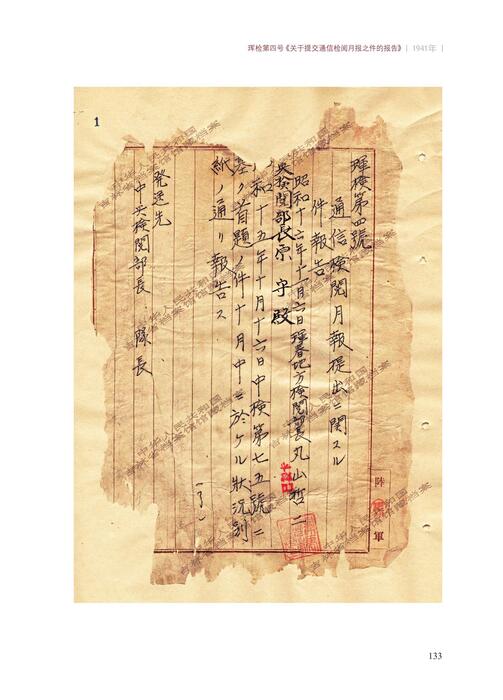 珲检第四号《关于提交通信检阅月报之件的报告》 | 1941年 |
1
琿檢第四號
通信檢閱月報提出ニ関スル
件報告
昭和十六年十一月六日琿春地方檢閱部長丸山哲二
央檢閱部長 宗 殿
和十五年十月十六日中檢第七五號ニ
基ク首題ノ件十月中ニ於ケル狀況別
紙ノ通リ報告ス
(了)
発送先
中央檢閱部長 隊長
陸
軍
吉林省档案馆馆藏档案
中华人民共和国
133